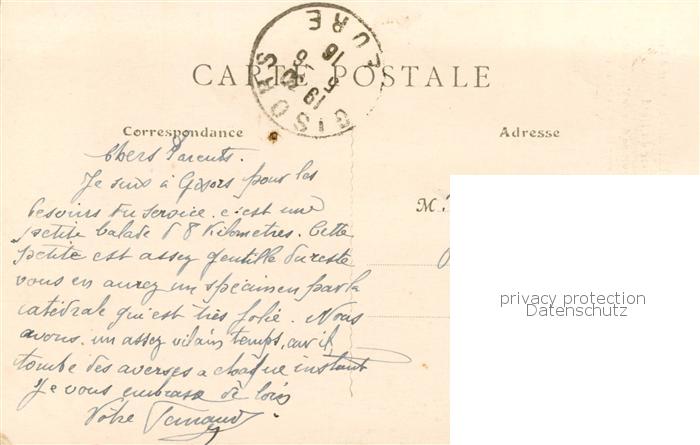 CARTE POSTALE
GISORS EURE
16
5
19
Correspondance
Adresse
M.
Chers Parents.
Je suis à Gisors pour les
besoins du service. c'est une
petite balade d 8 Kilometres. Cette
petite est assez gentille du reste
vous en aurez un spécimen par la
catédrale qui est très jolie. Nous
avons un assez vilain temps, car il
tombe des averses a chaque instant
Je vous embrasse de loin
Votre Fernand
privacy protection
Datenschutz